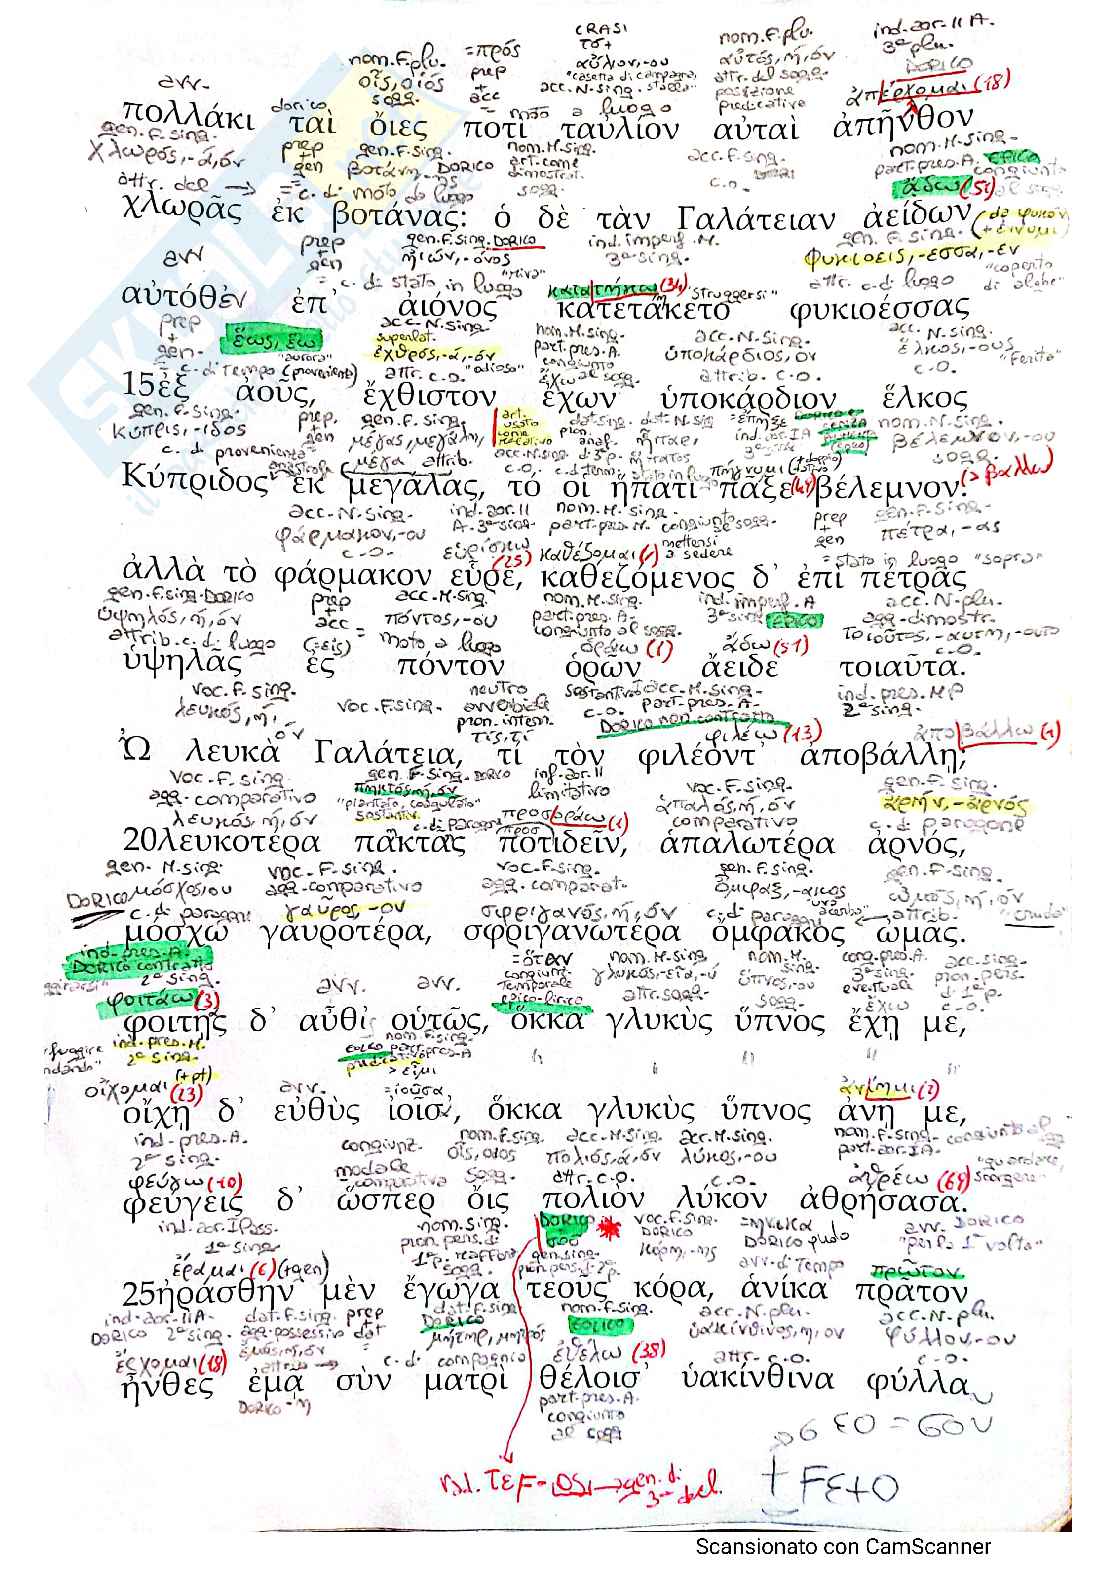 CRASI
ind. aor. II A.
nom. F. plu. =πρός τό+ nom. F. plu. 3ª plu.
avv. οἶς, οἰός prep αὔλιον, -ου αὐτός, ή, όν DORICO
sogg. + acc "casetta di campagna, stalla" attr. del sogg. ἀπέρχομαι (18)
dorico = moto a luogo acc. N. sing. posizione predicativa
πολλάκι ταὶ ὄιες ποτὶ ταὐλίον αὐταὶ ἀπῆνθον
gen. F. sing. prep gen. F. sing. nom. M. sing. acc. F. sing. nom. M. sing.
χλωρός, -ά, όν + gen βοτάνη, -ης DORICO art. come dimostrat. part. pres. A. EPICO congiunto
attr. del → = c. di moto da luogo sogg. c.o. ᾄδω (51) al sogg.
χλωρᾶς ἐκ βοτάνας: ὁ δὲ τὰν Γαλάτειαν ἀείδων
avv prep + gen gen. F. sing. DORICO ind. imperf. M. gen. F. sing.
ἠιών, -όνος 3ª sing. φυκιόεις, -εσσα, -εν
= c. di stato in luogo "riva" κατατήκω (34) "struggersi" attr. c. di luogo "coperto di alghe"
αὐτόθεν ἐπ' ἀιόνος κατετάκετο φυκιοέσσας
prep + gen. ἕως, ἕω acc. N. sing. nom. M. sing. acc. N. sing. acc. N. sing.
"aurora" superlat. ἐχθρός, -ά, -όν part. pres. A. congiunto ὑποκάρδιος, ον ἕλκος, -ους
= c. di tempo (proveniente) attr. c.o. "odioso" ἔχω al sogg. attrib. c.o. c.o. "ferita"
15ἐξ ἀοῦς, ἔχθιστον ἔχων ὑποκάρδιον ἕλκος
gen. F. sing. prep. + gen gen. F. sing. art. usato come relativo dat. sing. dat. sing. =ἔπηξε nom. N. sing.
Κύπρις, -ιδος μέγας, μεγάλη, μέγα acc. N. sing. pron. anaf. di 3ª p. ἧπαρ, ἥπατος ind. aor. I A βέλεμνον, -ου
c. di provenienza anastrofe attrib. c.o. c. di term. stato in luogo πήγνυμι sogg. (> βάλλω)
Κύπριδος ἐκ μεγάλας, τό οἱ ἥπατι πᾶξε βέλεμνον.
acc. N. sing. ind. aor. II nom. M. sing. prep gen. F. sing.
φάρμακον, -ου A. 3ª sing. part. pres. M. congiunto sogg. + gen πέτρα, -ας
c.o. εὑρίσκω (25) καθέζομαι mettersi a sedere = stato in luogo "sopra"
ἀλλὰ τὸ φάρμακον εὗρε, καθεζόμενος δ' ἐπὶ πέτρας
gen. F. sing. DORICO prep acc. M. sing. nom. M. sing. ind. imperf. A acc. N. plu.
ὑψηλός, ή, όν + acc πόντος, -ου part. pres. A. 3ª sing EPICO agg. dimostr.
attrib. c. di luogo (=εἰς) = moto a luogo congiunto al sogg. ὁράω (1) ᾄδω (51) τοιοῦτος, -αυτη, -ουτο c.o.
ὑψηλᾶς ἐς πόντον ὁρῶν ἄειδε τοιαῦτα.
voc. F. sing. voc. F. sing. neutro avverbiale sostantivato acc. M. sing. ind. pres. MP
λευκός, ή, όν pron. interr. c.o. part. pres. A. 2ª sing.
τίς, τί DORICO non contratto φιλέω (13) ἀποβάλλω (1)
Ὦ λευκὰ Γαλάτεια, τί τὸν φιλέοντ' ἀποβάλλῃ;
voc. F. sing. gen. F. sing. DORICO inf. aor. II voc. F. sing. gen. F. sing.
agg. comparativo πηκτός, ή, όν limitativo ἁπαλός, ή, όν ἀρήν, -ἀρνός
λευκός, ή, όν "piantato, coagulato" sostantiv. c. di paragone προσοράω (1) comparativo c. di paragone
20λευκοτέρα πακτᾶς ποτιδεῖν, ἁπαλωτέρα ἀρνός,
gen. M. sing. voc. F. sing. voc. F. sing. gen. F. sing. gen. F. sing.
DORICO μόσχος, ου agg. comparativo agg. comparat. ὄμφαξ, -ακος ὠμός, ή, όν
c. di paragone γαῦρος, -ον σφριγανός, ή, όν c. di paragone "uva acerba" ← attrib. "crudo"
μόσχω γαυροτέρα, σφριγανωτέρα ὄμφακος ὠμᾶς.
ind. pres. A. =ὅταν nom. M. sing. nom. M. sing. cong. pres. A. acc. sing.
DORICO contratto 2ª sing. avv. avv. congiunz. temporale γλυκύς, -εῖα, -ύ ὕπνος, ου 3ª sing. eventuale pron. pers. di 1ª p.
φοιτάω (3) epico-lirico attr. sogg. sogg. ἔχω c.o.
φοιτῇς δ' αὖθι οὑτῶς, ὅκκα γλυκὺς ὕπνος ἔχῃ με,
ind. pres. M. nom. F. sing.
"fuggire 2ª sing. EOLICO part. pres. A predicativo
οἴχομαι (23) avv. =ἰοῦσα > εἶμι ἀνίημι (2)
οἴχῃ δ' εὐθὺς ἰοῖσ', ὅκκα γλυκὺς ὕπνος ἀνῇ με,
ind. pres. A. congiunz. nom. F. sing. acc. M. sing. acc. M. sing. nom. F. sing. congiunto al
2ª sing. modale οἶς, οἰός πολιός, ά, όν λύκος, -ου part. aor. IA. "guardare,
φεύγω (10) comparativa sogg. attr. c.o. c.o. ἀθρέω (64) scorgere"
φεύγεις δ' ὥσπερ ὄις πολιὸν λύκον ἀθρήσασα.
ind. aor. I Pass. nom. sing. DORICO voc. F. sing. =ἡνίκα avv. DORICO
1ª sing pron. pers. di 1ª p. rafforz. σοῦ DORICO DORICO "per la 1ª volta"
ἔραμαι (6) (+gen) sogg. gen. sing. pron. pers. 2ª p. κόρη, -ης avv. di tempo πρῶτον
25ἠράσθην μὲν ἔγωγα τεοῦς κόρα, ἁνίκα πρᾶτον
ind. aor. II A dat. F. sing. prep dat. F. sing. nom. F. sing. acc. N. plu. acc. N. plu.
DORICO 2ª sing. agg. possessivo dat DORICO EOLICO ὑακίνθινος, η, ον φύλλον, -ου
ἔρχομαι (18) ἐμός, ή, όν μήτηρ, μητρός ἐθέλω (38) attr. c.o. c.o.
attrib → c. di compagnia
ἦνθες ἐμᾷ σὺν ματρὶ θέλοισ' ὑακίνθινα φύλλα
DORICO -η part. pres. A.
congiunto
al sogg
σεο = σου
n.d. τεϜ-οσι → gen. di 3ª decl.
+ Ϝε+ο
Scansionato con CamScanner